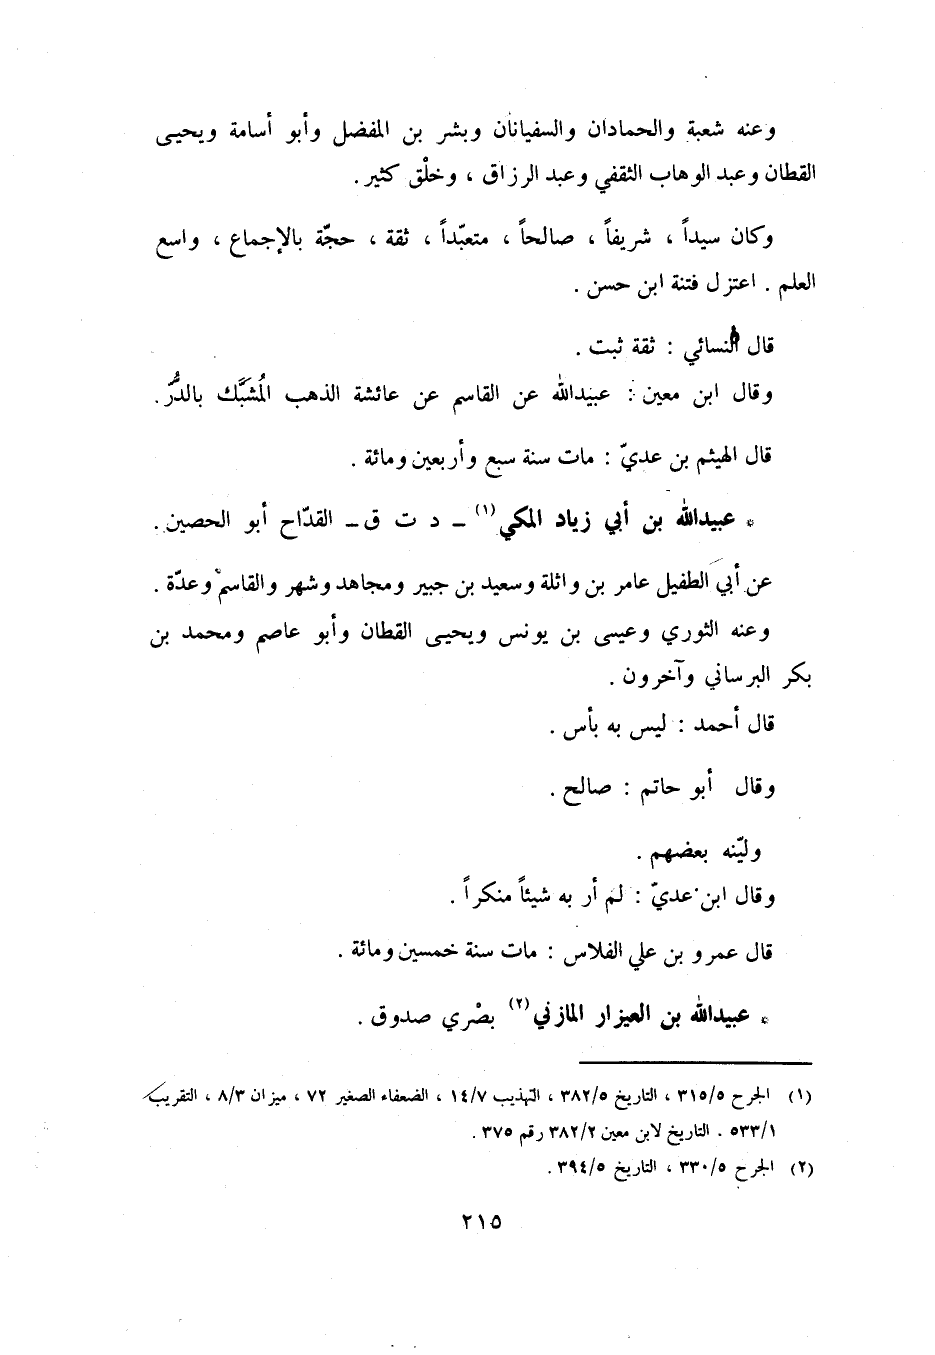 وعنه شعبة والحمادان والسفيانان وبشر بن المفضل وأبو أسامة ويحيى
القطان وعبد الوهاب الثقفي وعبد الرزاق ، وخلْق كثير .
وكان سيداً ، شريفاً ، صالحاً ، متعبّداً ، ثقة ، حجّة بالإجماع ، واسع
العلم . اعتزل فتنة ابن حسن .
قال النسائي : ثقة ثبت .
وقال ابن معين : عبيدالله عن القاسم عن عائشة الذهب المُشَبَّك بالدُّرّ .
قال الهيثم بن عديّ : مات سنة سبع وأربعين ومائة .
* عبيدالله بن أبي زياد المكي (١) ــ د ت ق ــ القدّاح أبو الحصين .
عن أبي الطفيل عامر بن واثلة وسعيد بن جبير ومجاهد وشهر والقاسم وعدّة .
وعنه الثوري وعيسى بن يونس ويحيى القطان وأبو عاصم ومحمد بن
بكر البرساني وآخرون .
قال أحمد : ليس به بأس .
وقال أبو حاتم : صالح .
وليّنه بعضهم .
وقال ابن عديّ : لم أر به شيئاً منكراً .
قال عمرو بن علي الفلاس : مات سنة خمسين ومائة .
* عبيدالله بن العيزار المازني (٢) بصْري صدوق .
(١) الجرح ٣١٥/٥ ، التاريخ ٣٨٢/٥ ، التهذيب ١٤/٧ ، الضعفاء الصغير ٧٢ ، ميزان ٨/٣ ، التقريب
٥٣٣/١ . التاريخ لابن معين ٣٨٢/٢ رقم ٣٧٥ .
(٢) الجرح ٣٣٠/٥ ، التاريخ ٣٩٤/٥ .
٢١٥